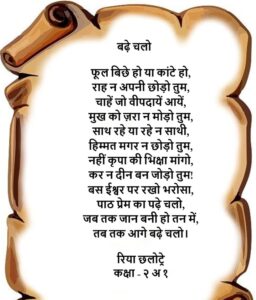 बढ़े चलो
फूल बिछे हो या कांटे हो,
राह न अपनी छोड़ो तुम,
चाहें जो वीपदायें आयें,
मुख को ज़रा न मोड़ो तुम,
साथ रहे या रहे न साथी,
हिम्मत मगर न छोड़ो तुम,
नहीं कृपा की भिक्षा मांगो,
कर न दीन बन जोड़ो तुम!
बस ईश्वर पर रखो भरोसा,
पाठ प्रेम का पढ़े चलो,
जब तक जान बनी हो तन में,
तब तक आगे बढ़े चलो।
रिया छलोट्रे
कक्षा - २ अ १